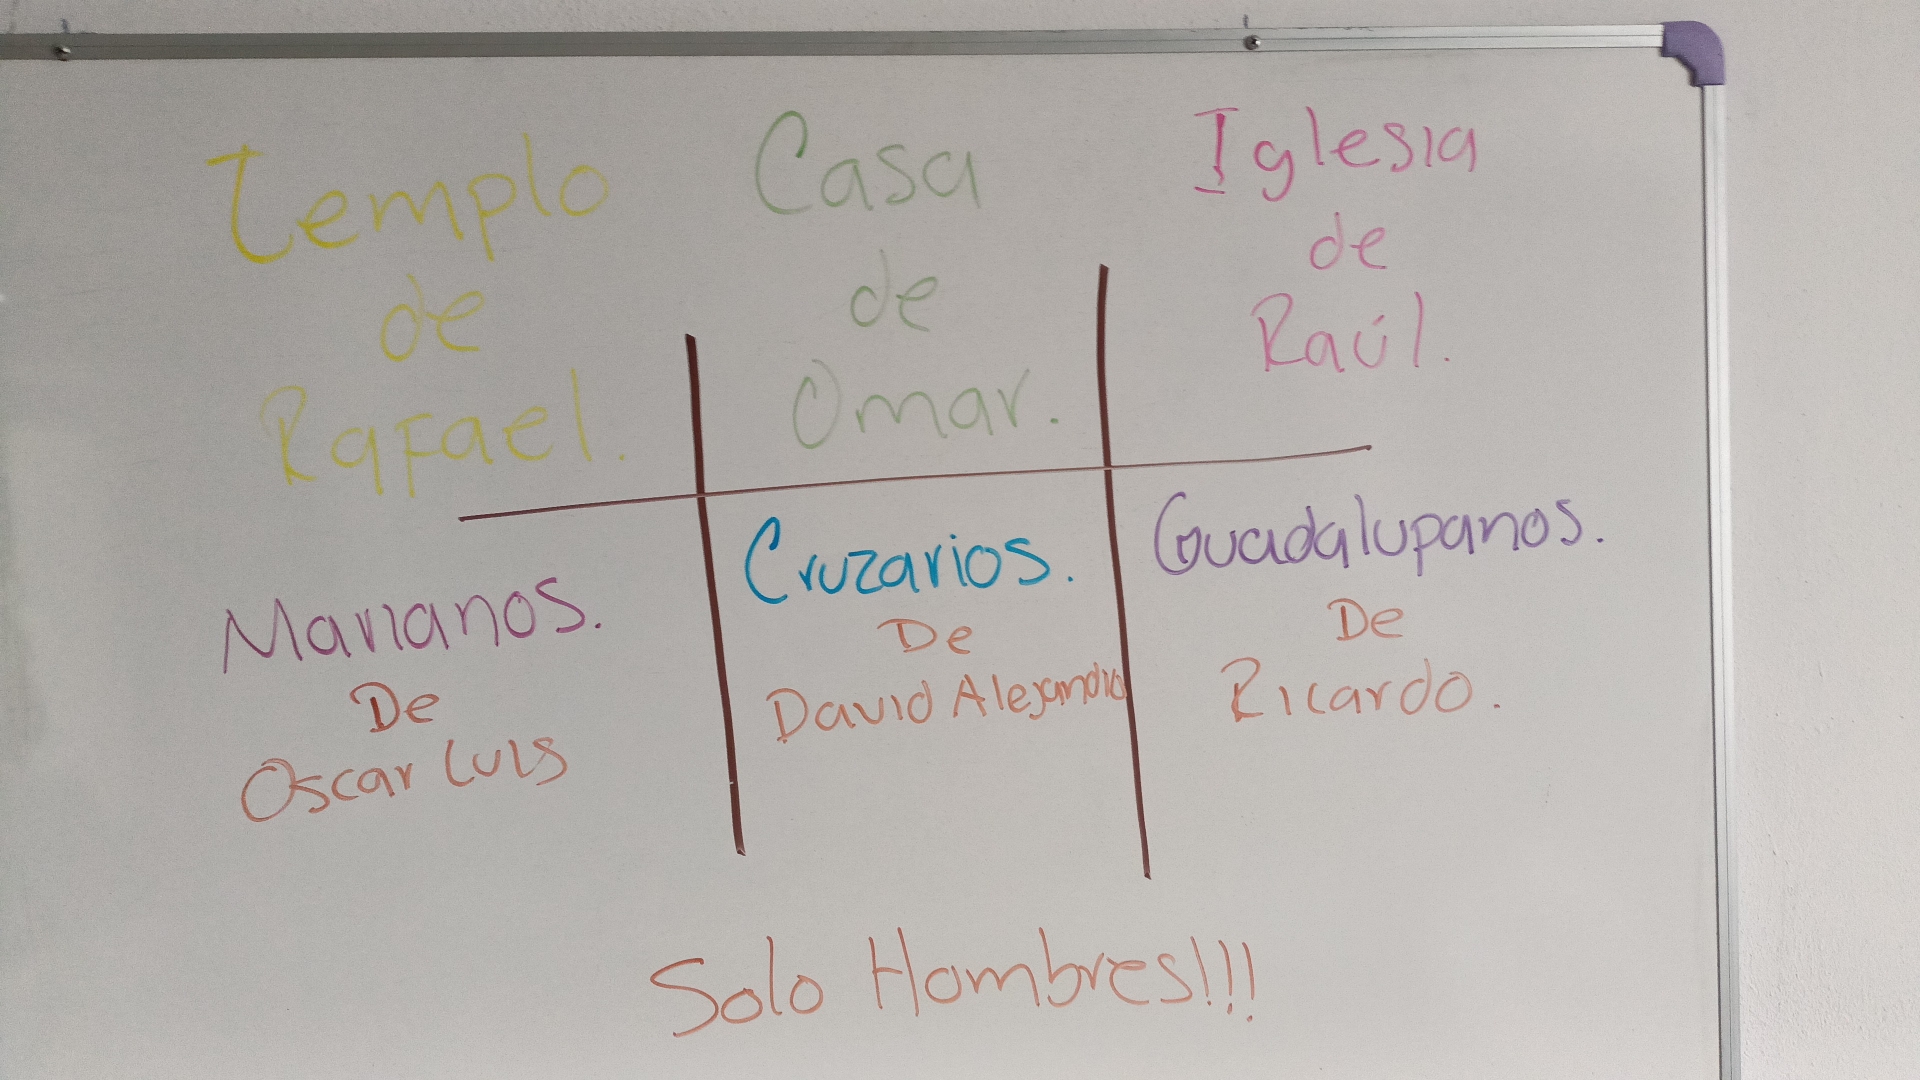 Templo
de
Rafael.
Casa
de
Omar.
Iglesia
de
Raúl.
Marianos.
De
Oscar Luis
Cruzarios.
De
David Alejandro
Guadalupanos.
De
Ricardo.
Solo Hombres!!!